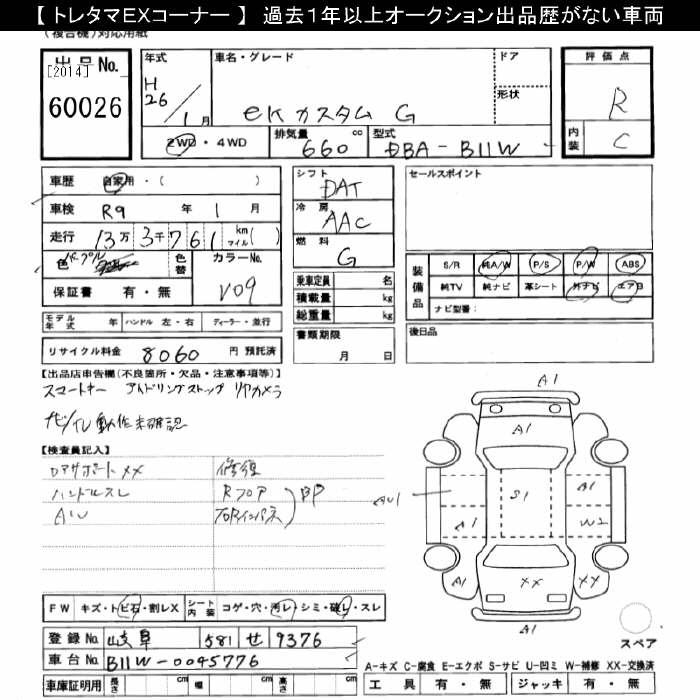 【 トレタマEXコーナー 】 過去1年以上オークション出品歴がない車両
(複合機)対応用紙
出品 No.
[2014]
60026
年式 H 26 / 1 月
車名・グレード eKカスタム G
ドア
形状
2WD ・ 4WD
排気量 660 cc
型式 DBA-B11W
評価点 R
内装 C
車歴 自家用 ・( )
車検 R9 年 1 月
走行 13万 3千 7 6 1 km マイル( )
色 パープル 色替
カラーNo. V09
保証書 有・無
モデル年式 年 ハンドル 左・右 ディーラー・並行
リサイクル料金 8060 円 預託済
シフト DAT
冷房 AAC
燃料 G
乗車定員 名
積載量 kg
総重量 kg
書類期限 月 日
セールスポイント
装備品 S/R 純A/W P/S P/W ABS
純TV 純ナビ 革シート 外ナビ エアB
ナビ型番:
後日品
【出品店申告欄(不良箇所・欠品・注意事項等)】
スマートキー アイドリングストップ リヤカメラ
ナビ/TV 動作未確認
【検査員記入】
ロアサポート XX 修復
ハンドルスレ Rフロア
AW
A1
A1
S1
A1
AU1
A1
W2
A1
XX
XX
A1
スペア
FW キズ・トビ石・割レX シート内装 コゲ・穴・汚レ・シミ・破レ・スレ
登録 No. 岐阜 581 せ 9376
車台 No. B11W-0045776
車庫証明用 長さ cm 幅 cm 高さ cm
A-キズ C-腐食 E-エクボ S-サビ U-凹ミ W-補修 XX-交換済
工具 有・無 ジャッキ 有・無